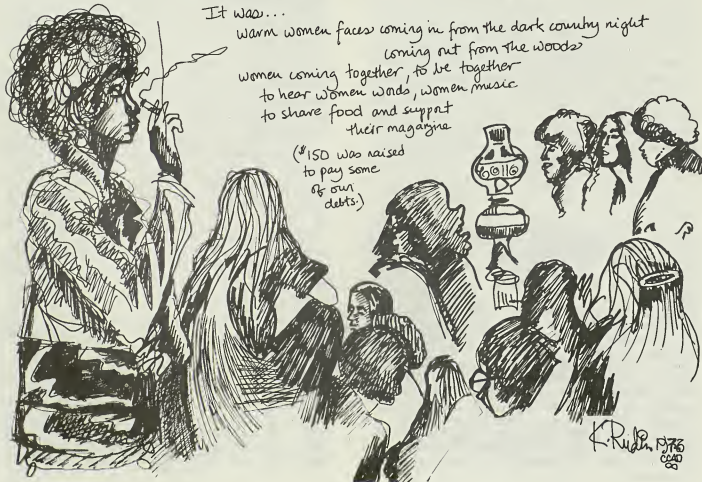 It was...
warm women faces coming in from the dark country night
coming out from the woods
women coming together, to be together
to hear women words, women music
to share food and support
their magazine
($150 was raised
to pay some
of our
debts.)
K. Rudin 1973
CCAD